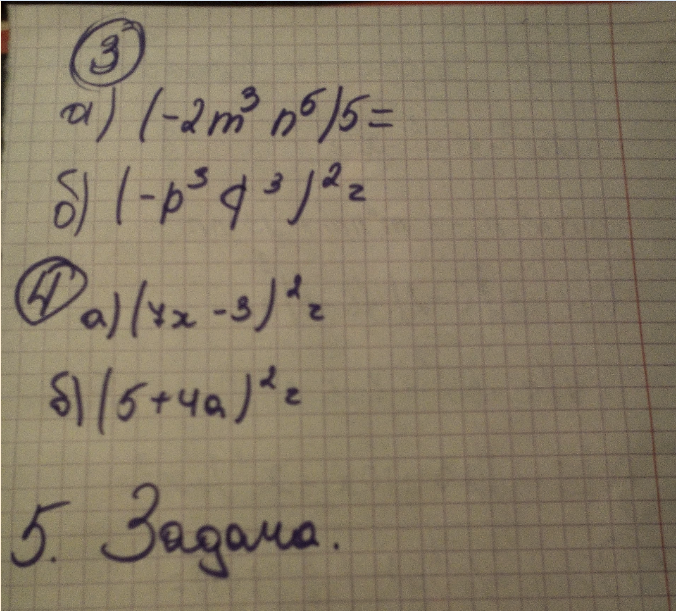 3
а) (-2m³ n⁵)5=
б) (-p³ q³)²=
4 а) (7x -3)²=
б) (5+4a)²=
5. Задача.